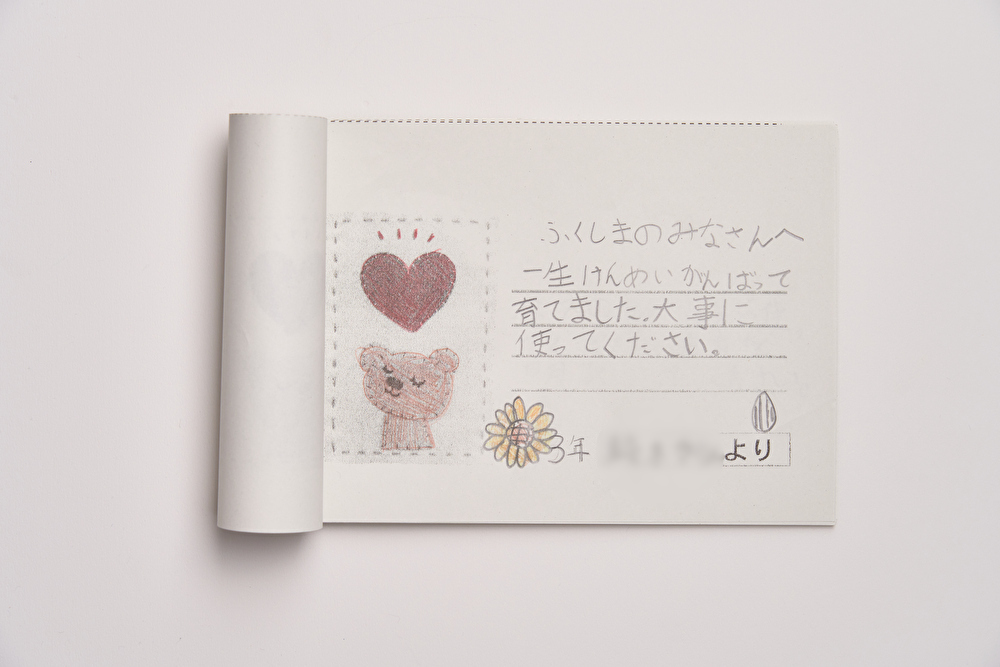 ふくしまのみなさんへ
一生けんめいがんばって
育てました。大事に
使ってください。
3年
より